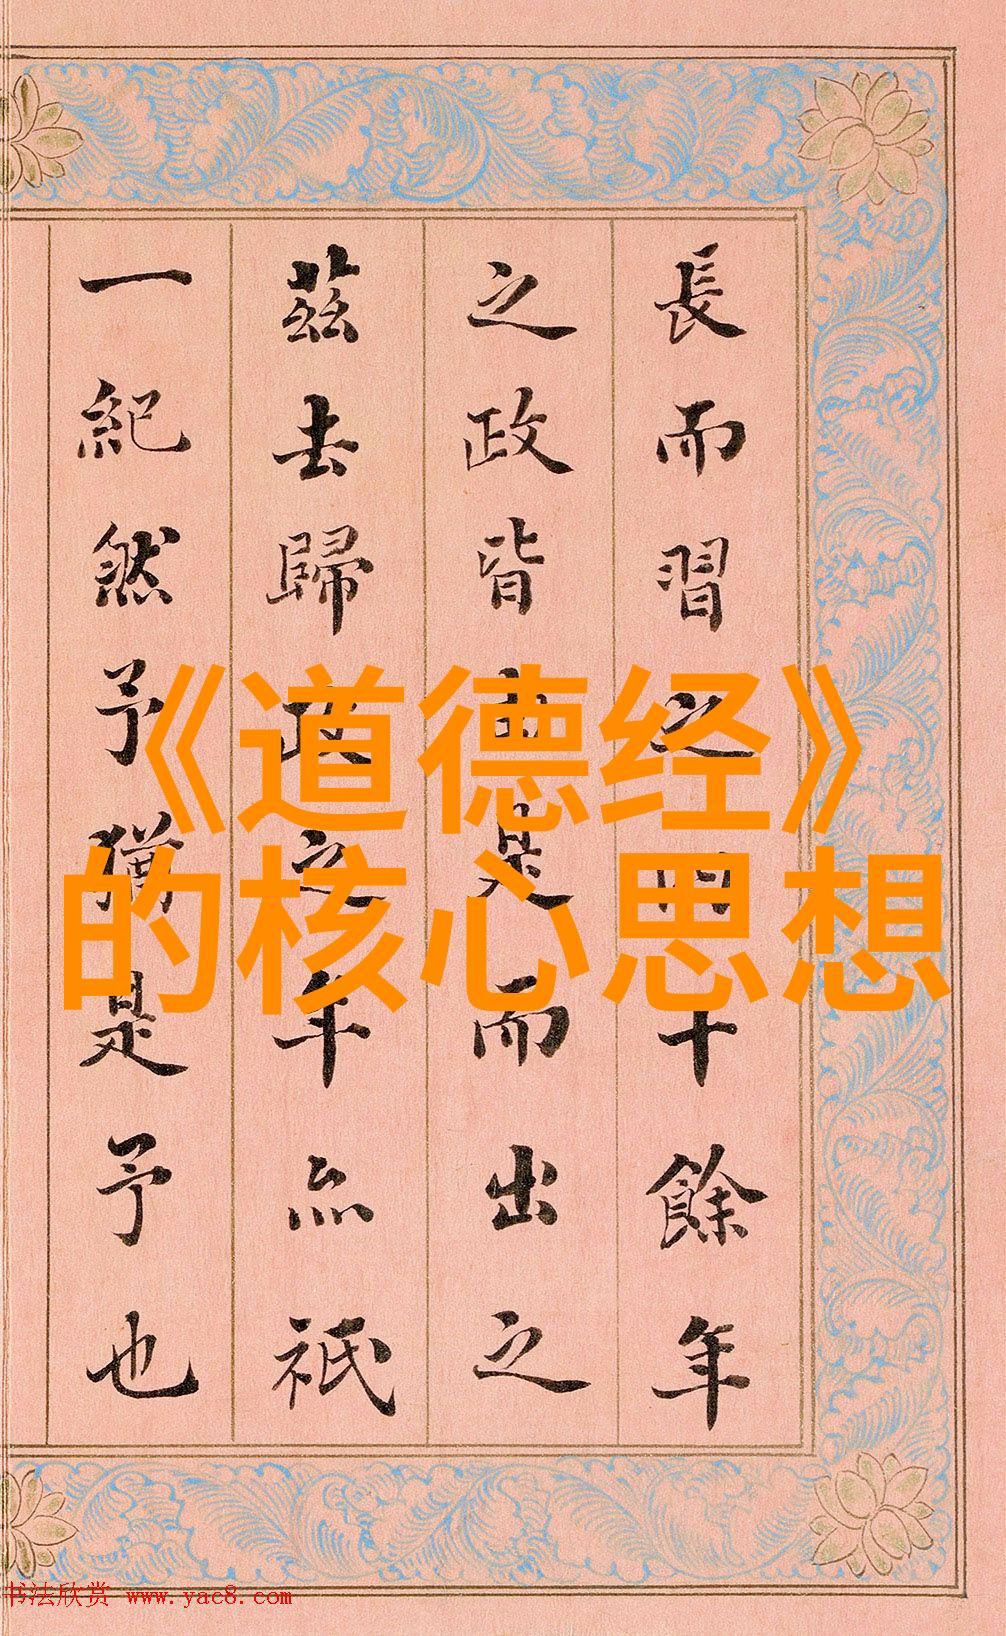 《道德经》
的核心思想
長而習之四十餘年
之政皆由是而出之
茲去歸政之年亦祇
一紀然予猶是予也
书法欣赏 www.yac8.com